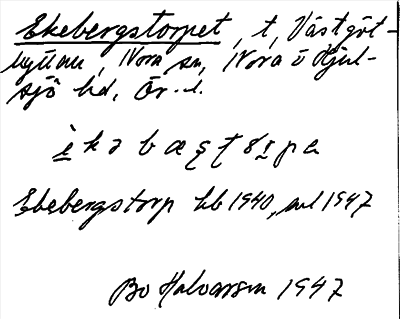 Ekebergstorpet, t, Västgöt-
hyttan, Nora sn, Nora o Hjul-
sjö hd, Ör. l.
è k ə b æ ş ţ ɷ r p a
Ekebergstorp hb 1940, ml 1947
Bo Halvarson 1947